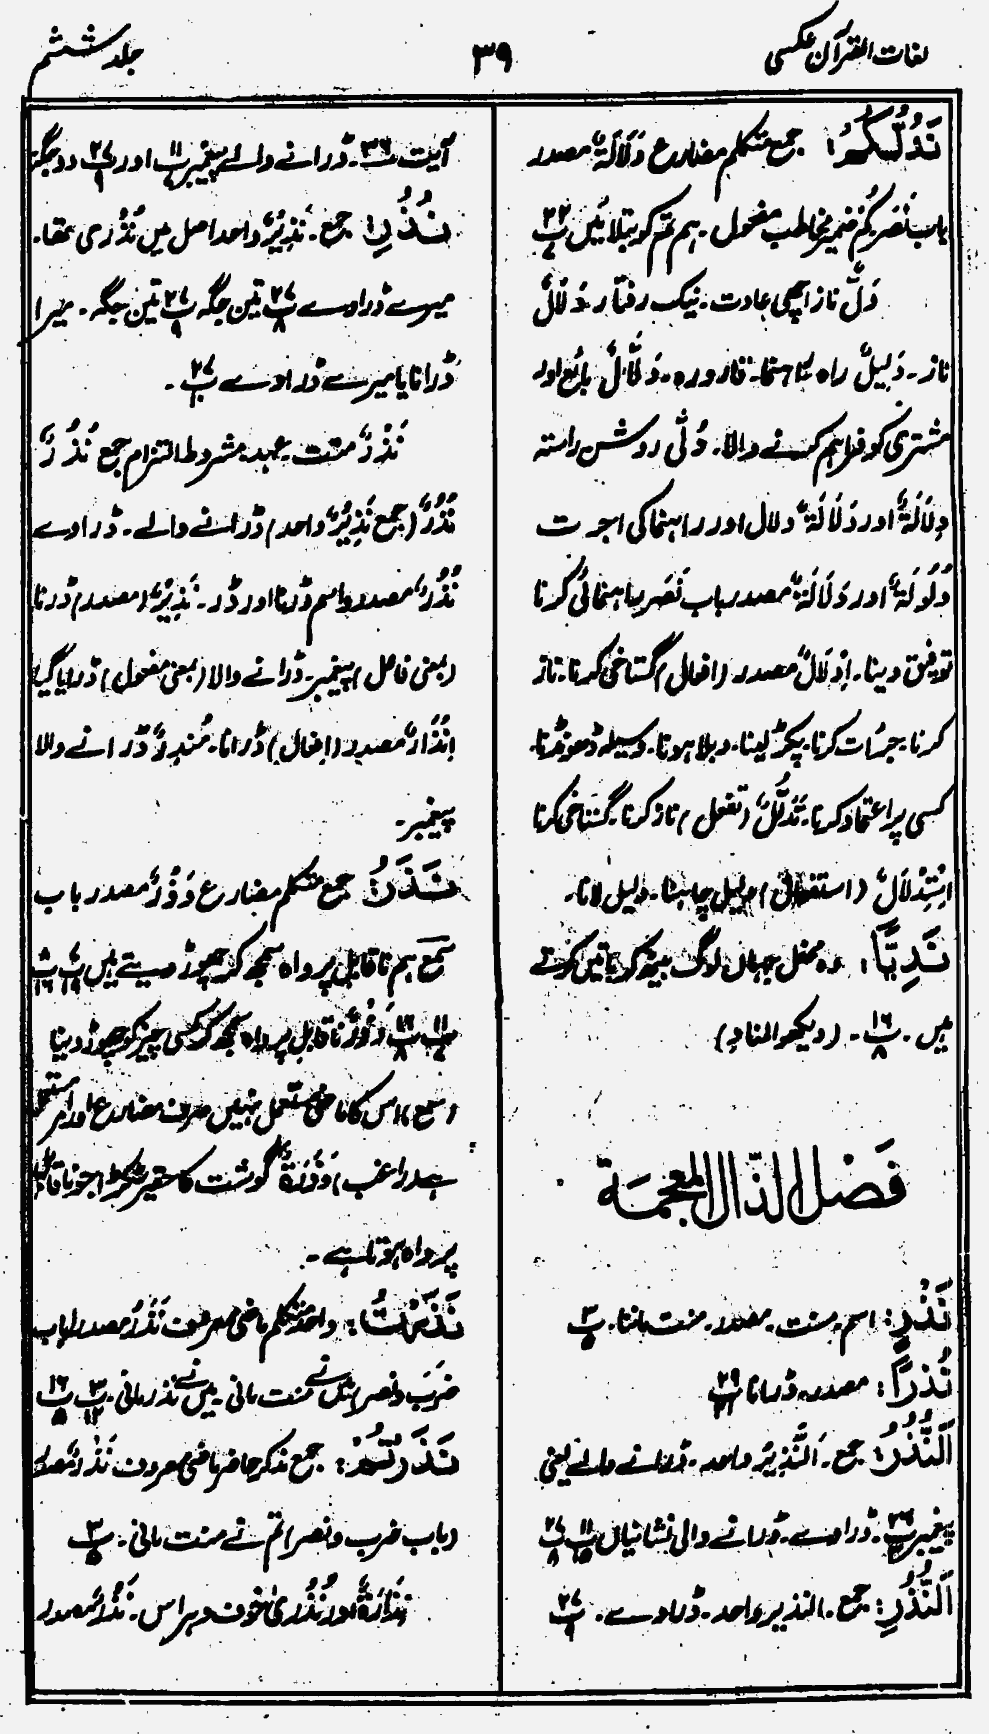 لغات القرآن عکسی
۳۹
جلد ششم
نَدُلُّكُمْ: جمع متکلم مضارع دَلَالَةٌ مصدر
باب نَصَرَ کُمْ ضمیر مخاطب مفعول۔ ہم تم کو بتلائیں پ۲۲/۷
دَلٌّ ناز اچھی عادت۔ نیک رفتار دَلَالٌ
ناز۔ دَلِیلٌ راہ نما رہنما۔ قارورہ۔ دَلَّالٌ بائع اور
مشتری کو فراہم کرنے والا۔ دُلّٰی روشن راستہ
دِلَالَةٌ اور دَلَالَةٌ دلال اور راہنما کی اجرت
دُلُولَةٌ اور دَلَالَةٌ مصدر باب نَصَرَ راہنمائی کرنا
توفیق دینا۔ اِدْلَالٌ مصدر (افعال) گستاخی کرنا۔ ناز
کرنا۔ جرأت کرنا۔ پکڑ لینا۔ دبلا ہونا۔ وسیلہ ڈھونڈنا۔
کسی پر اعتماد کرنا۔ تَدَلُّلٌ (تفعل) ناز کرنا۔ گستاخی کرنا
اِسْتِدْلَالٌ (استفعال) دلیل چاہنا۔ دلیل لانا۔
نَدِيًّا: وہ محفل جہاں لوگ بیٹھ کر باتیں کرتے
ہیں۔ پ۱۶/۸۔ (دیکھو المناد)
فَصْل الذّال المعجمة
نَذْرٍ: اسم۔ منت۔ مصدر۔ منت ماننا۔ پ۳/۵
نُذْرًا: مصدر۔ ڈرانا پ۲۹/۲۱
اَلنُّذُرُ: جمع۔ اَلنَّذِیرُ واحد۔ ڈرانے والے یعنی
پیغمبر پ۲۶/۲۔ ڈراوے۔ ڈرانے والی نشانیاں پ۱۱/۱۵ پ۲۷/۸
اَلنُّذُرِ: جمع۔ النذیر واحد۔ ڈراوے۔ پ۲۷/۹
آیت ۳۶۔ ڈرانے والے پیغمبر پ۱۱/۷ اور پ۲۷/۹ دو جگہ
نُذُرِ: جمع۔ نَذِیْرٌ واحد اصل میں نُذُرِی تھا۔
میرے ڈراوے پ۲۷/۸ تین جگہ پ۲۷/۹ تین جگہ۔ میرا
ڈرانا یا میرے ڈراوے پ۲۷/۱۰۔
نَذْرٌ منت۔ عہد۔ مشروط التزام جمع نُذُرٌ
نُذُرٌ (جمع نَذِیْرٌ واحد) ڈرانے والے۔ ڈراوے
نُذُرٌ مصدر و اسم ڈرنا اور ڈر۔ نَذِیْرٌ (مصدر) ڈرنا
(بمعنی فاعل) پیغمبر۔ ڈرانے والا (بمعنی مفعول) ڈرایا گیا
اِنْذَارٌ مصدر (افعال) ڈرانا۔ مُنْذِرٌ ڈرانے والا
پیغمبر۔
نَذَرُ: جمع متکلم مضارع وَذْرٌ مصدر باب
سَمِعَ ہم ناقابل پرواہ سمجھ کر چھوڑ دیتے ہیں
وَذْرٌ ناقابل پرواہ سمجھ کر کسی چیز کو چھوڑ دینا
(سمع) اس کا ماضی مستعمل نہیں صرف مضارع اور امر مستعمل
ہے (راغب) وَذْرَةٌ گوشت کا حقیر ٹکڑا جو ناقابل
پرواہ ہوتا ہے۔
نَذَرْتُ: واحد متکلم ماضی معروف نَذْرٌ مصدر (باب
ضَرَبَ و نصر) میں نے منت مانی۔ میں نے نذر مانی۔ پ۳/۱۲ پ۱۶/۵
نَذَرْتُمْ: جمع مذکر حاضر ماضی معروف نَذْرٌ مصدر
(باب ضرب و نصر) تم نے منت مانی۔ پ۳/۵
نِذَارَةٌ اور نُذْرٰی خوف و ہراس۔ نَذْرٌ مصدر